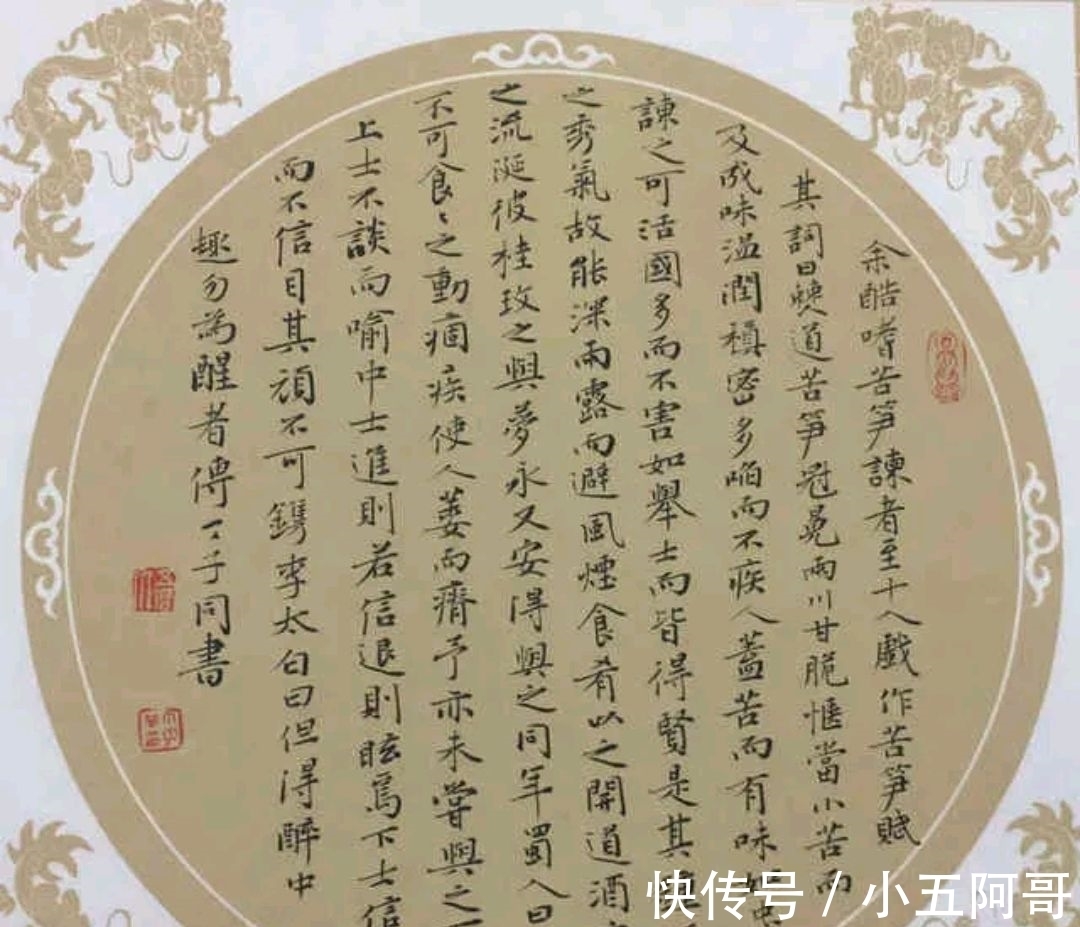 余酷嗜苦笋諫者至十人戲作苦笋賦
其詞曰僰道苦笋冠冕兩川甘脆惬當小苦而
及成味温潤縝密多啗而不疾人蓋苦而有味如忠
諫之可活國多而不害如舉士而皆得賢是其
之秀氣故能深雨露而避風煙食肴以之開道酒
之流涎彼桂玫之與夢永又安得與之同年蜀人曰
不可食〻之動痼疾使人萎而瘠予亦未嘗與之
上士不談而喻中士進則若信退則眩焉下士信
而不信目其頑不可鐫李太白曰但得醉中
趣勿為醒者傳 子同書
快传号 / 小五阿哥